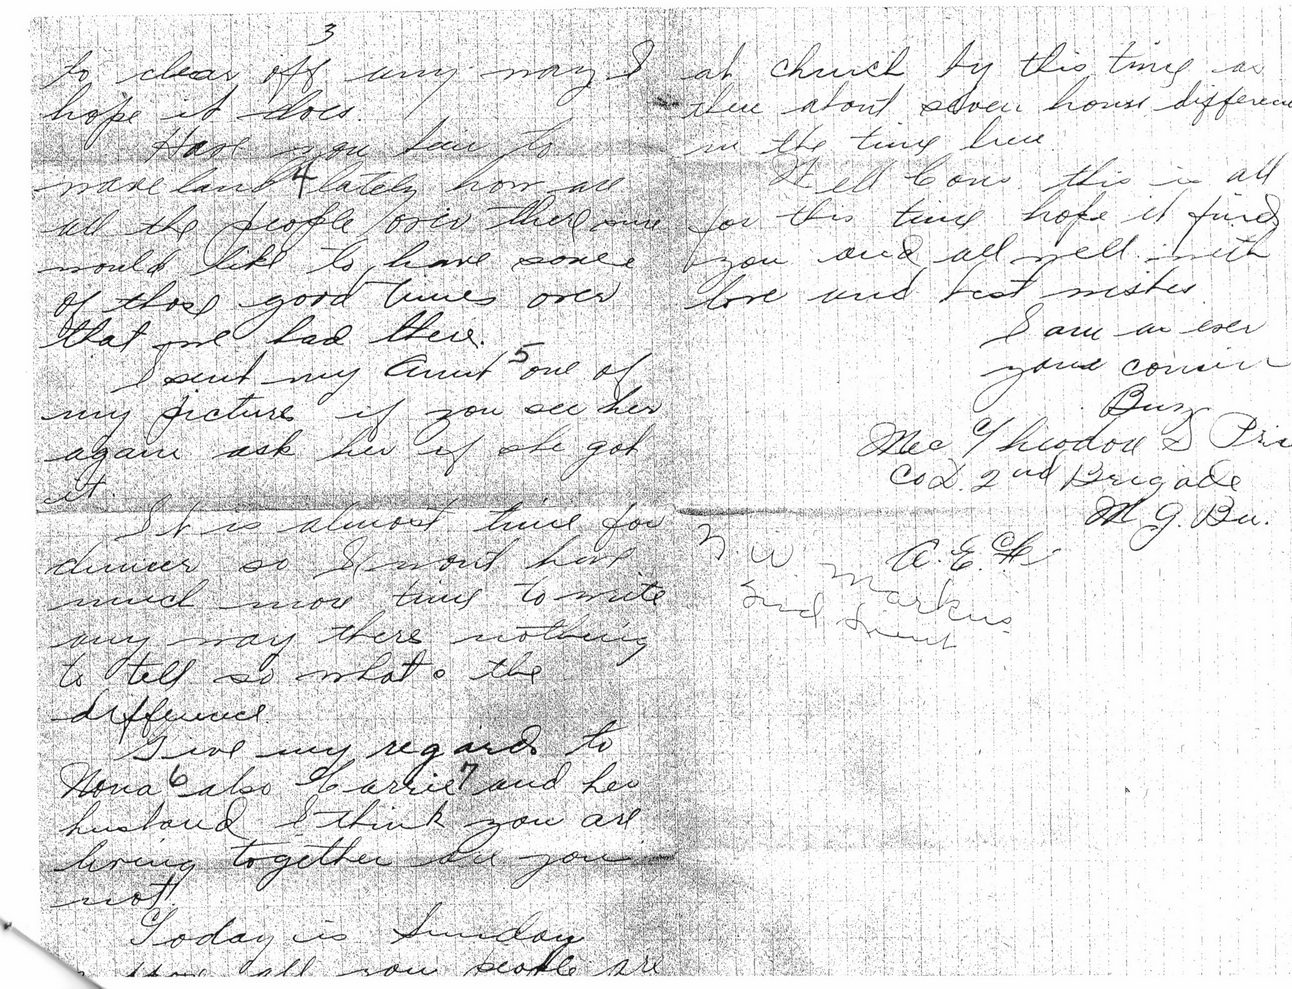 3
to clear off any way I
hope it does.
Have you been to
waveland 4 lately how are
all the people over there sure
would like to have some
of those good times over
that we had there.
I sent my Aunt 5 one of
my picture if you see her
again ask her if she got
it.
It is almost time for
dinner so I wont have
much more time to write
any way there nothing
to tell so what's the
diffference.
Give my regards to
Nona 6 also Carrie 7 and her
husband I think you are
living together are you
not.
Today is Sunday
all you people are
at church by this time as
there about seven hours difference
in the time here.
Well Cous this is all
for this time hope it finds
you and all well. with
love and best wishes.
I am as ever
your cousin
Buz
Mec Theodore S Pri
Co D. 2nd Brigade
M G. Bn.
A. E. F.
N W Markus
2nd Lieut